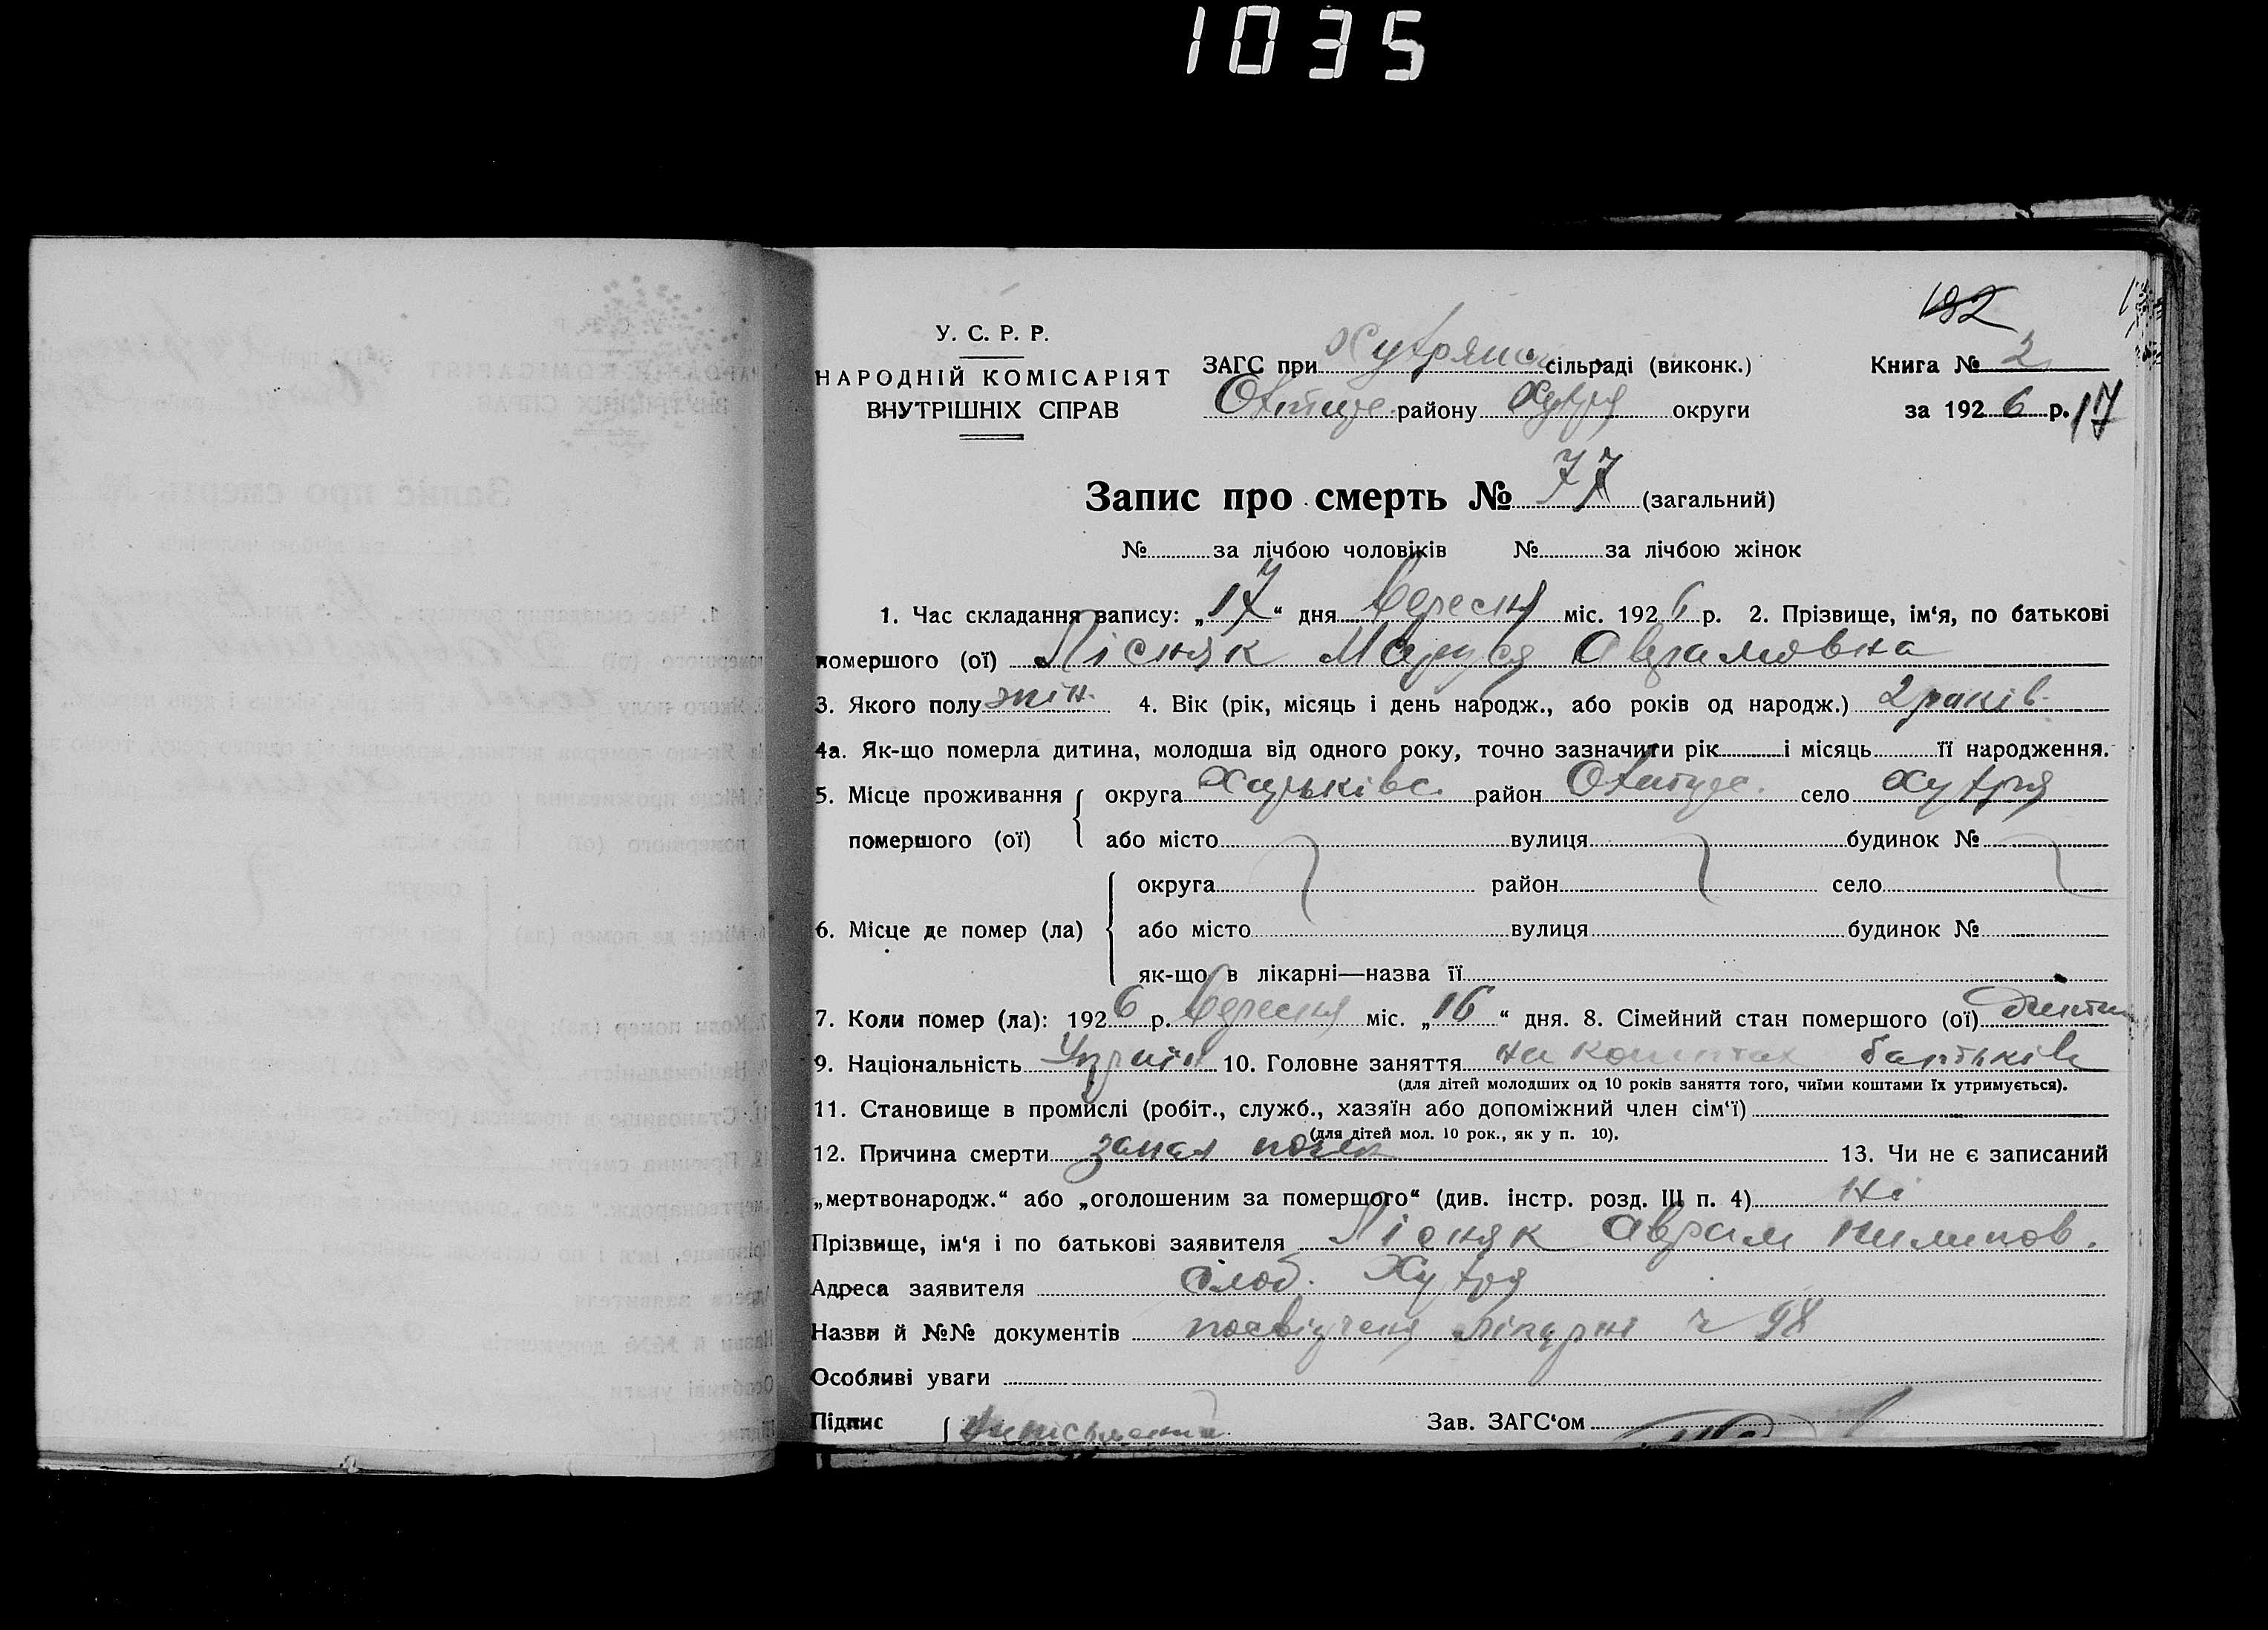 1035
192
У. С. Р. Р.
НАРОДНІЙ КОМІСАРІЯТ
ВНУТРІШНІХ СПРАВ
ЗАГС при Хутрянс сільраді (виконк.) Книга № 2
району Хутря округи за 1926 р. 17
Запис про смерть № 77 (загальний)
№ за лічбою чоловіків № за лічбою жінок
1. Час складання запису: „17“ дня вересня міс. 1926 р. 2. Прізвище, ім‘я, по батькові
помершого (ої) Лісняк Маруся Аврамовна
3. Якого полу жін. 4. Вік (рік, місяць і день народж., або років од народж.) 2 років
4а. Як-що померла дитина, молодша від одного року, точно зазначити рік і місяць її народження.
5. Місце проживання округа Харьківс. район село Хутря
помершого (ої) або місто вулиця будинок №
округа район село
6. Місце де помер (ла) або місто вулиця будинок №
як-що в лікарні—назва її
7. Коли помер (ла): 1926 р. вересня міс. „16“ дня. 8. Сімейний стан помершого (ої)
9. Національність Україн 10. Головне заняття на коштах батьків
(для дітей молодших од 10 років заняття того, чиїми коштами їх утримується).
11. Становище в промислі (робіт., служб., хазяїн або допоміжний член сім‘ї)
(для дітей мол. 10 рок., як у п. 10).
12. Причина смерти запал почек 13. Чи не є записаний
„мертвонародж.“ або „оголошеним за помершого“ (див. інстр. розд. III п. 4) Ні
Прізвище, ім‘я і по батькові заявителя Лісняк Аврам Пилипов.
Адреса заявителя слоб. Хутря
Назви й №№ документів посвідченя лікарні ч 98
Особливі уваги
Підпис Неписьменний Зав. ЗАГС‘ом